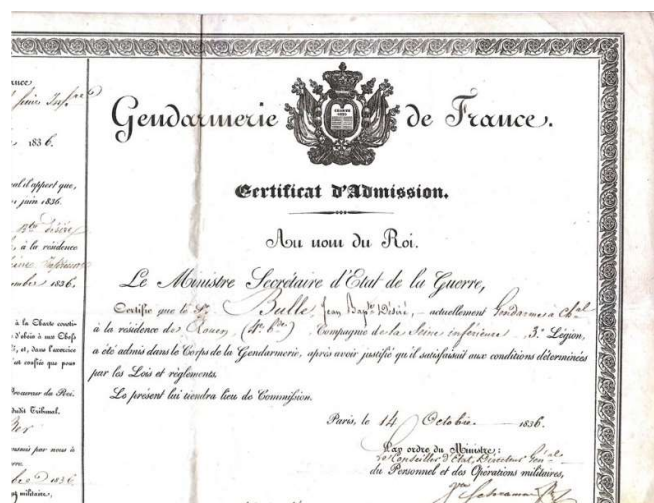 ance
Seine Inf.re
1836.
il appert que,
juin 1836.
B.te Désiré
, à la résidence
Inférieure
embre 1836,
à la Charte consti-
d'obéir à mes Chefs
, et, dans l'exercice
est confiée que pour
Procureur du Roi.
dudit Tribunal.
1836
militaire,
Gendarmerie de France.
CHARTE
1830
Certificat d'Admission.
Au nom du Roi.
Le Ministre Secrétaire d'État de la Guerre,
Certifie que le S.r Bulle, Jean Bap.te Désiré, actuellement Gendarme à ch.al
à la résidence de Rouen, (4.e B.de) Compagnie de la Seine inférieure, 3.e Légion,
a été admis dans le Corps de la Gendarmerie, après avoir justifié qu'il satisfaisait aux conditions déterminées
par les Lois et règlements.
Le présent lui tiendra lieu de Commission.
Paris, le 14 Octobre 1836.
Par ordre du Ministre:
Le Conseiller d'État, Directeur Gén.al
du Personnel et des Opérations militaires,